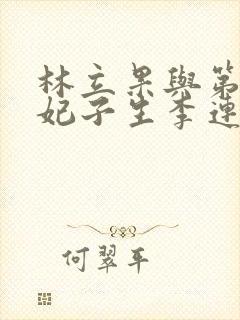 林立果與第
妃子生李連
何翠平